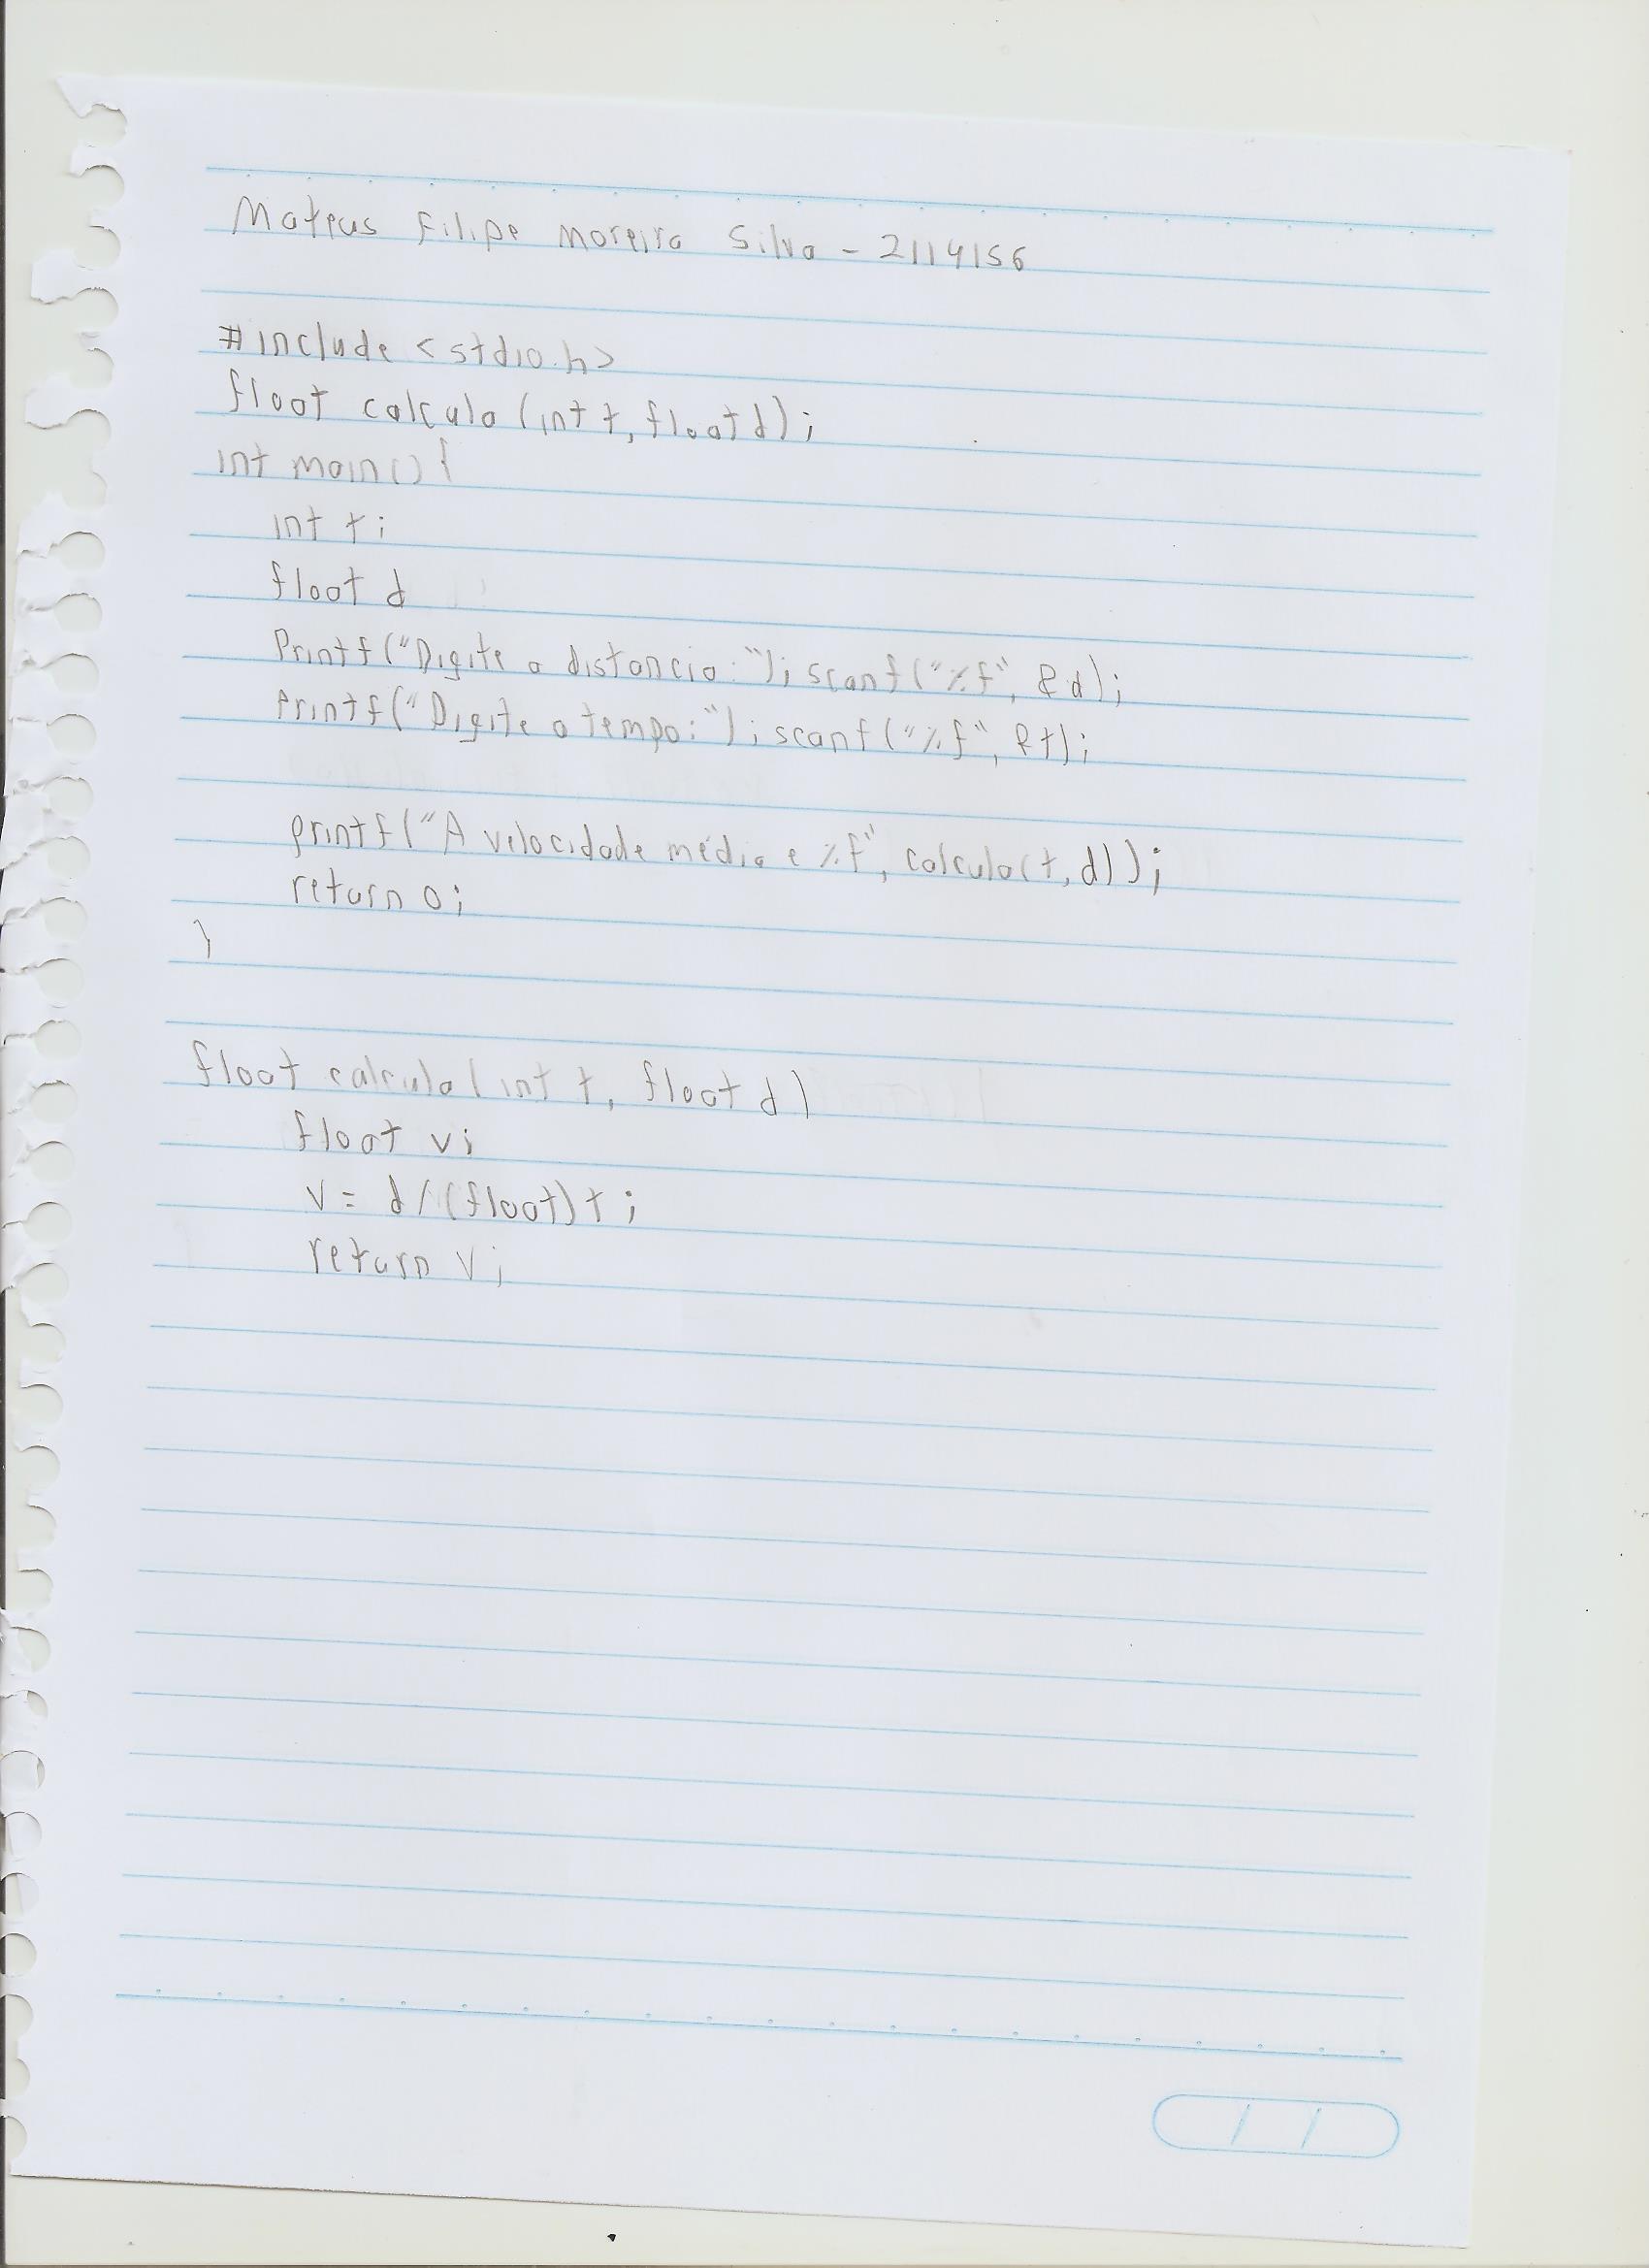 Mateus Filipe Moreira Silva - 2114156
#include <stdio.h>
float calcula (int t, float d);
int main() {
int t;
float d
Printf("Digite a distancia:"); scanf("%f", &d);
Printf("Digite o tempo:"); scanf("%f", &t);
printf("A velocidade média e %f", calcula(t, d));
return 0;
}
float calcula (int t, float d)
float v;
v = d/(float)t;
return v;